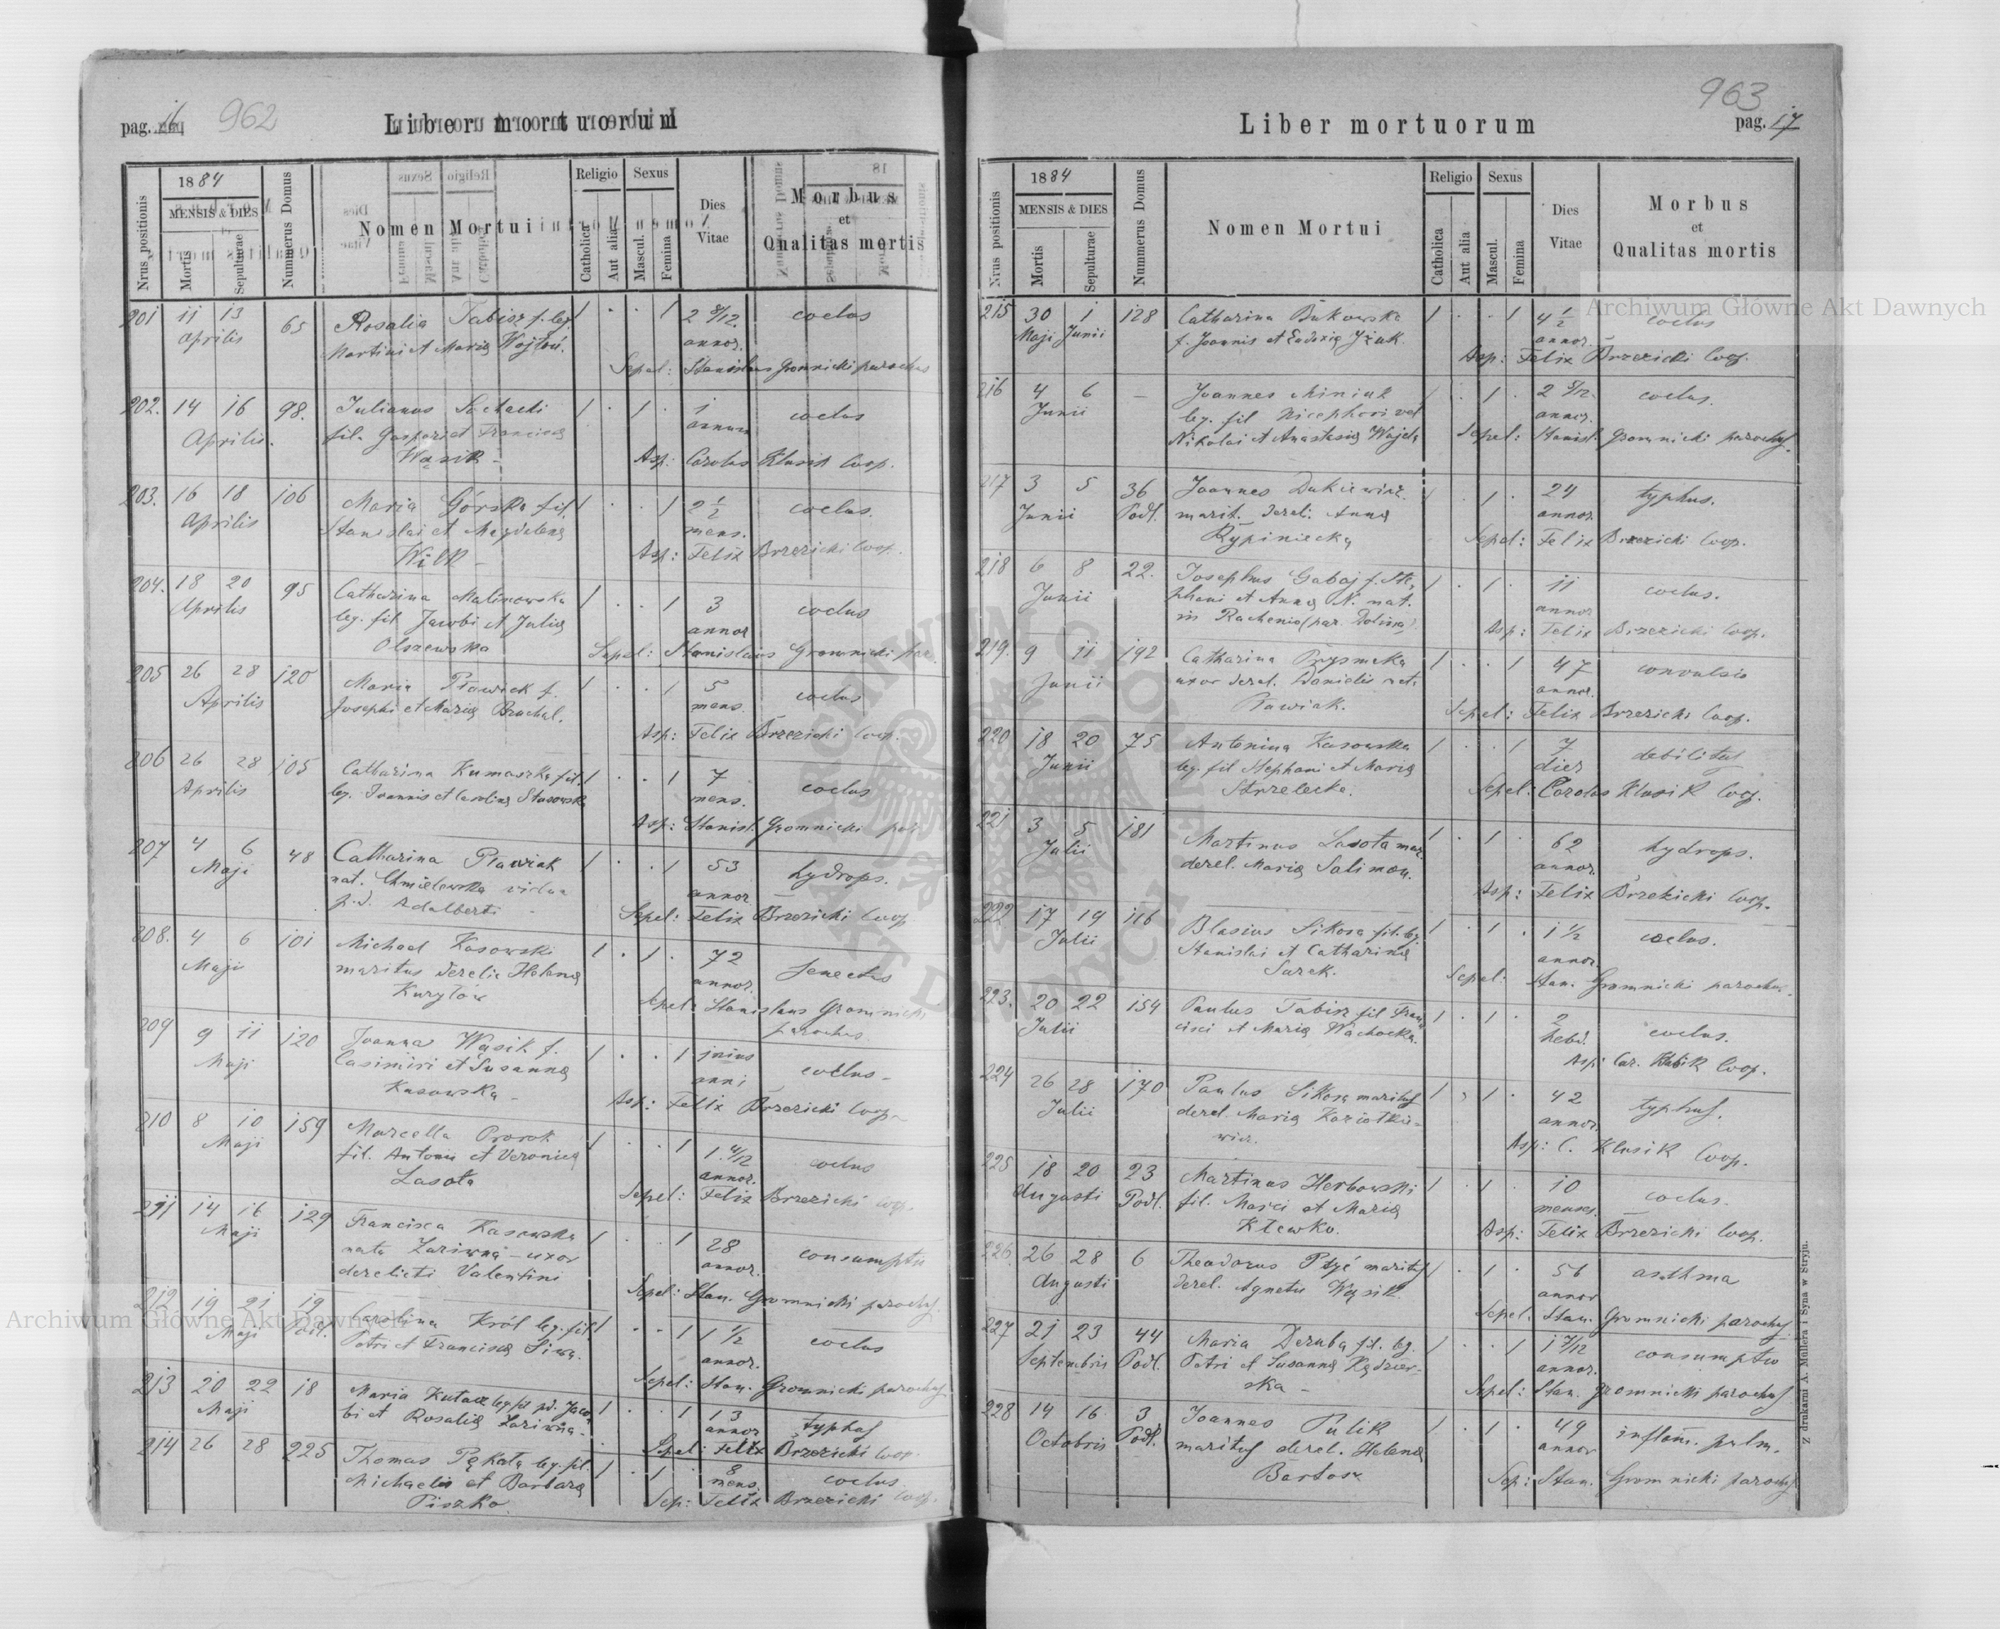 pag. 16 962
Liber mortuorum
Nrus positionis
1884
MENSIS & DIES
Mortis
Sepulturae
Nummerus Domus
Nomen Mortui
Religio
Catholica
Aut alia
Sexus
Mascul.
Femina
Dies
Vitae
Morbus
et
Qualitas mortis
201 11 13 65 Rosalia Tabisz f. leg. 1 . . 1 2 8/12 coclus
Aprilis Martini et Marię Wojtoń. annor.
Sepel: Stanislaus Gromnicki parochus
202. 14 16 98. Julianus Sochacki 1 . 1 . 1 coclus
Aprilis. fil. Gasperi et Franciscę annum
Wąsik - Asp: Carolus Klusik Coop.
203. 16 18 106 Maria Górska fil. 1 . . 1 2 1/2 coclus.
Aprilis Stanislai et Magdalenę mens.
Wilk - Asp: Felix Brzezicki Coop.
204. 18 20 95 Catharina Malinowska 1 . . 1 3 coclus
Aprilis leg. fil. Jacobi et Julię annor
Olszewska Sepel: Stanislaus Gromnicki par.
205 26 28 120 Maria Pławiak f. 1 . . 1 5 coclus
Aprilis Josephi et Marię Brachal. mens.
Asp: Felix Brzezicki Coop.
206 26 28 105 Catharina Kumaszka fil. 1 . . 1 7 coclus
Aprilis leg. Joannis et Carolinę mens.
Asp: Stanisl. Gromnicki par.
207 4 6 48 Catharina Pławiak 1 . . 1 53 hydrops.
Maji nat. Chmielewska vidua annor
p. d. Adalberti - Sepel: Felix Brzezicki Coop
208. 4 6 101 Michael Kasowski 1 . 1 . 72 senectus
Maji maritus derelic. Helenę annor.
Kuryłów Sepel: Stanislaus Gromnicki
parochus
209 9 11 120 Joanna Wąsik f. 1 . . 1 unius coclus -
Maji Casimiri et Susannę anni
Kasowska - Asp: Felix Brzezicki Coop.
210 8 10 159 Marcella Prorok 1 . . 1 1 4/12 coclus
Maji fil. Antonii et Veronicę annor.
Lasota Sepel: Felix Brzezicki Coop.
211 14 16 129 Francisca Kasowska 1 . . 1 28 consumptio
Maji nata Zariwna - uxor annor.
derelicti Valentini Sepel: Stan. Gromnicki parochus.
212 19 21 19 Carolina Król leg. fil. 1 . . 1 1 1/2 coclus
Maji Podl. Petri et Franciscę Siwa. annor.
Sepel: Stan. Gromnicki parochus.
213 20 22 18 Maria leg. fil. pd. Jaco- 1 . . 1 13 typhus
Maji bi et Rosalię Zariwna. annor
Sepel: Felix Brzezicki Coop.
214 26 28 225 Thomas Pękala leg. fil. 1 . 1 . 8 coclus
Michaelis et Barbarę mens.
Piszko. Sep: Felix Brzezicki Coop.
963
Liber mortuorum
pag. 17
Nrus positionis
1884
MENSIS & DIES
Mortis
Sepulturae
Nummerus Domus
Nomen Mortui
Religio
Catholica
Aut alia
Sexus
Mascul.
Femina
Dies
Vitae
Morbus
et
Qualitas mortis
215 30 1 128 Catharina Bukowska 1 . . 1 4 1/2 coclus
Maji Junii f. Joannis et Eudoxię Jżuk. annor.
Asp: Felix Brzezicki Coop.
216 4 6 - Joannes Miniuk 1 . 1 . 2 8/12 coclus.
Junii leg. fil. Nicephori vel annor.
Nikolai et Anastasię Wajda Sepel: Stanisl. Gromnicki parochus.
217 3 5 36 Joannes Dukiewicz. 1 . 1 . 24 typhus.
Junii Podl. marit. derel. Annę annor.
Rypiniecka Sepel: Felix Brzezicki Coop.
218 6 8 22. Josephus Gabaj f. Ste- 1 . 1 . 11 coclus.
Junii phani et Annę N. nat. annor
in Rachenio (par. Dolina) Asp: Felix Brzezicki Coop.
219. 9 11 192 Catharina 1 . . 1 47 convulsio
Junii uxor derel. Danielis nat. annor.
Pławiak. Sepel: Felix Brzezicki Coop.
220 18 20 75 Antonina Kasowska 1 . . 1 7 debilitas
Junii leg. fil. Stephani et Marię dies
Strzelecka. Sepel: Carolus Klusik Coop.
221 3 5 181 Martinus Lasota mar. 1 . 1 . 62 hydrops.
Julii derel. Marię Salimon. annor.
Asp: Felix Brzezicki Coop.
222 17 19 116 Blasius Sikora fil. leg. 1 . 1 . 1 1/2 coclus.
Julii Stanislai et Catharinę annor.
Surek. Sepel: Stan. Gromnicki parochus.
223. 20 22 154 Paulus Tabisz fil. Fran- 1 . 1 . 2 coclus.
Julii cisci et Marię Wachocka. hebd.
Asp: Car. Klusik Coop.
224 26 28 170 Paulus Sikora maritus 1 . 1 . 42 typhus.
Julii derel. Marię Koziołkie- annor.
wicz. Asp: C. Klusik Coop.
225 18 20 23 Martinus Herbowski 1 . 1 . 10 coclus.
Augusti Podl. fil. Marci et Marię menses.
Klewko. Asp: Felix Brzezicki Coop.
226. 26 28 6 Theodorus Ptyć maritus 1 . 1 . 56 asthma
Augusti derel. Agnetis Wąsik. annor
Sepel. Stan. Gromnicki parochus
227 21 23 44 Maria Deruba fil. leg. 1 . . 1 1 7/12 consumptio
Septembris Podl. Petri et Susannę Kędzier- annor.
ska - Sepel: Stan. Gromnicki parochus
228 14 16 3 Joannes Pulik 1 . 1 . 49 inflam. pulm.
Octobris Podl. maritus derel. Helenę annor
Bartosz Sep: Stan. Gromnicki parochus
Z drukarni A. Müllera i Syna w Stryju.
Archiwum Główne Akt Dawnych
Archiwum Główne Akt Dawnych
ARCHIWUM GŁÓWNE AKT DAWNYCH